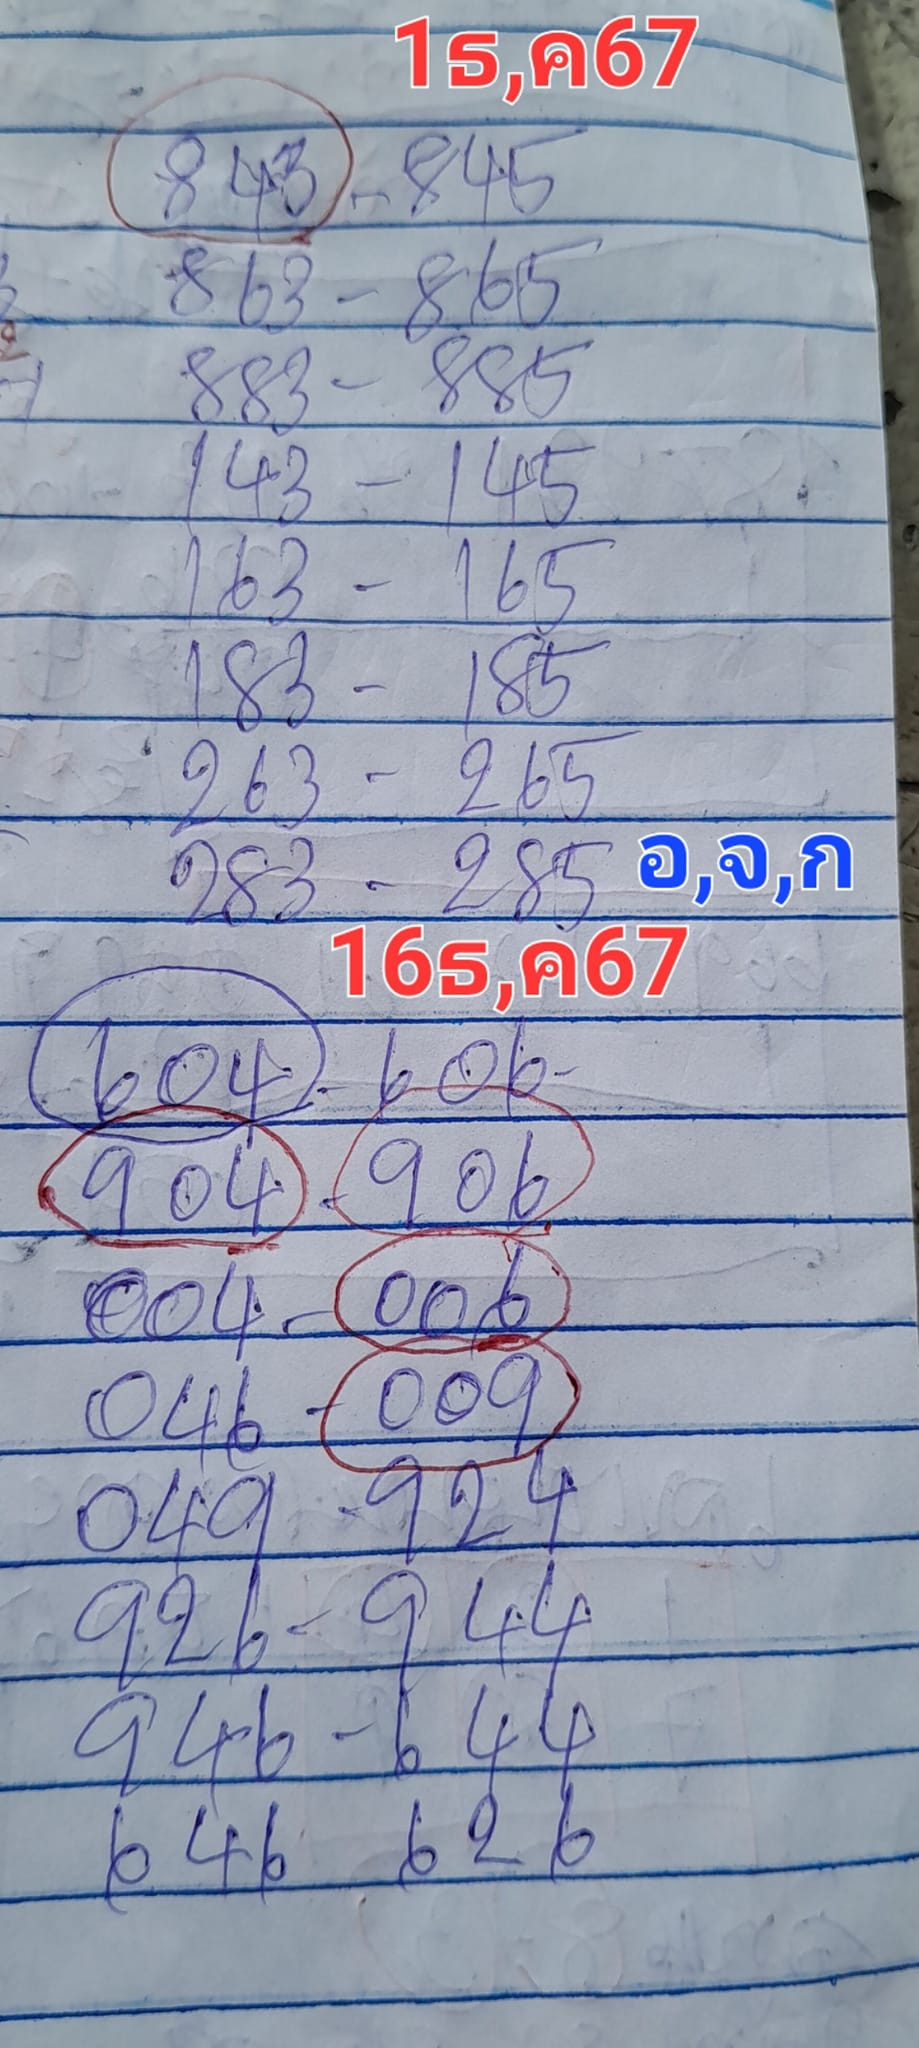 1ธ,ค67
843 - 845
863 - 865
883 - 885
143 - 145
163 - 165
183 - 185
263 - 265
283 - 285 อ,จ,ก
16ธ,ค67
604 - 606 -
904 - 906
004 - 006
046 - 009
049 - 924
926 - 944
946 - 644
646 626